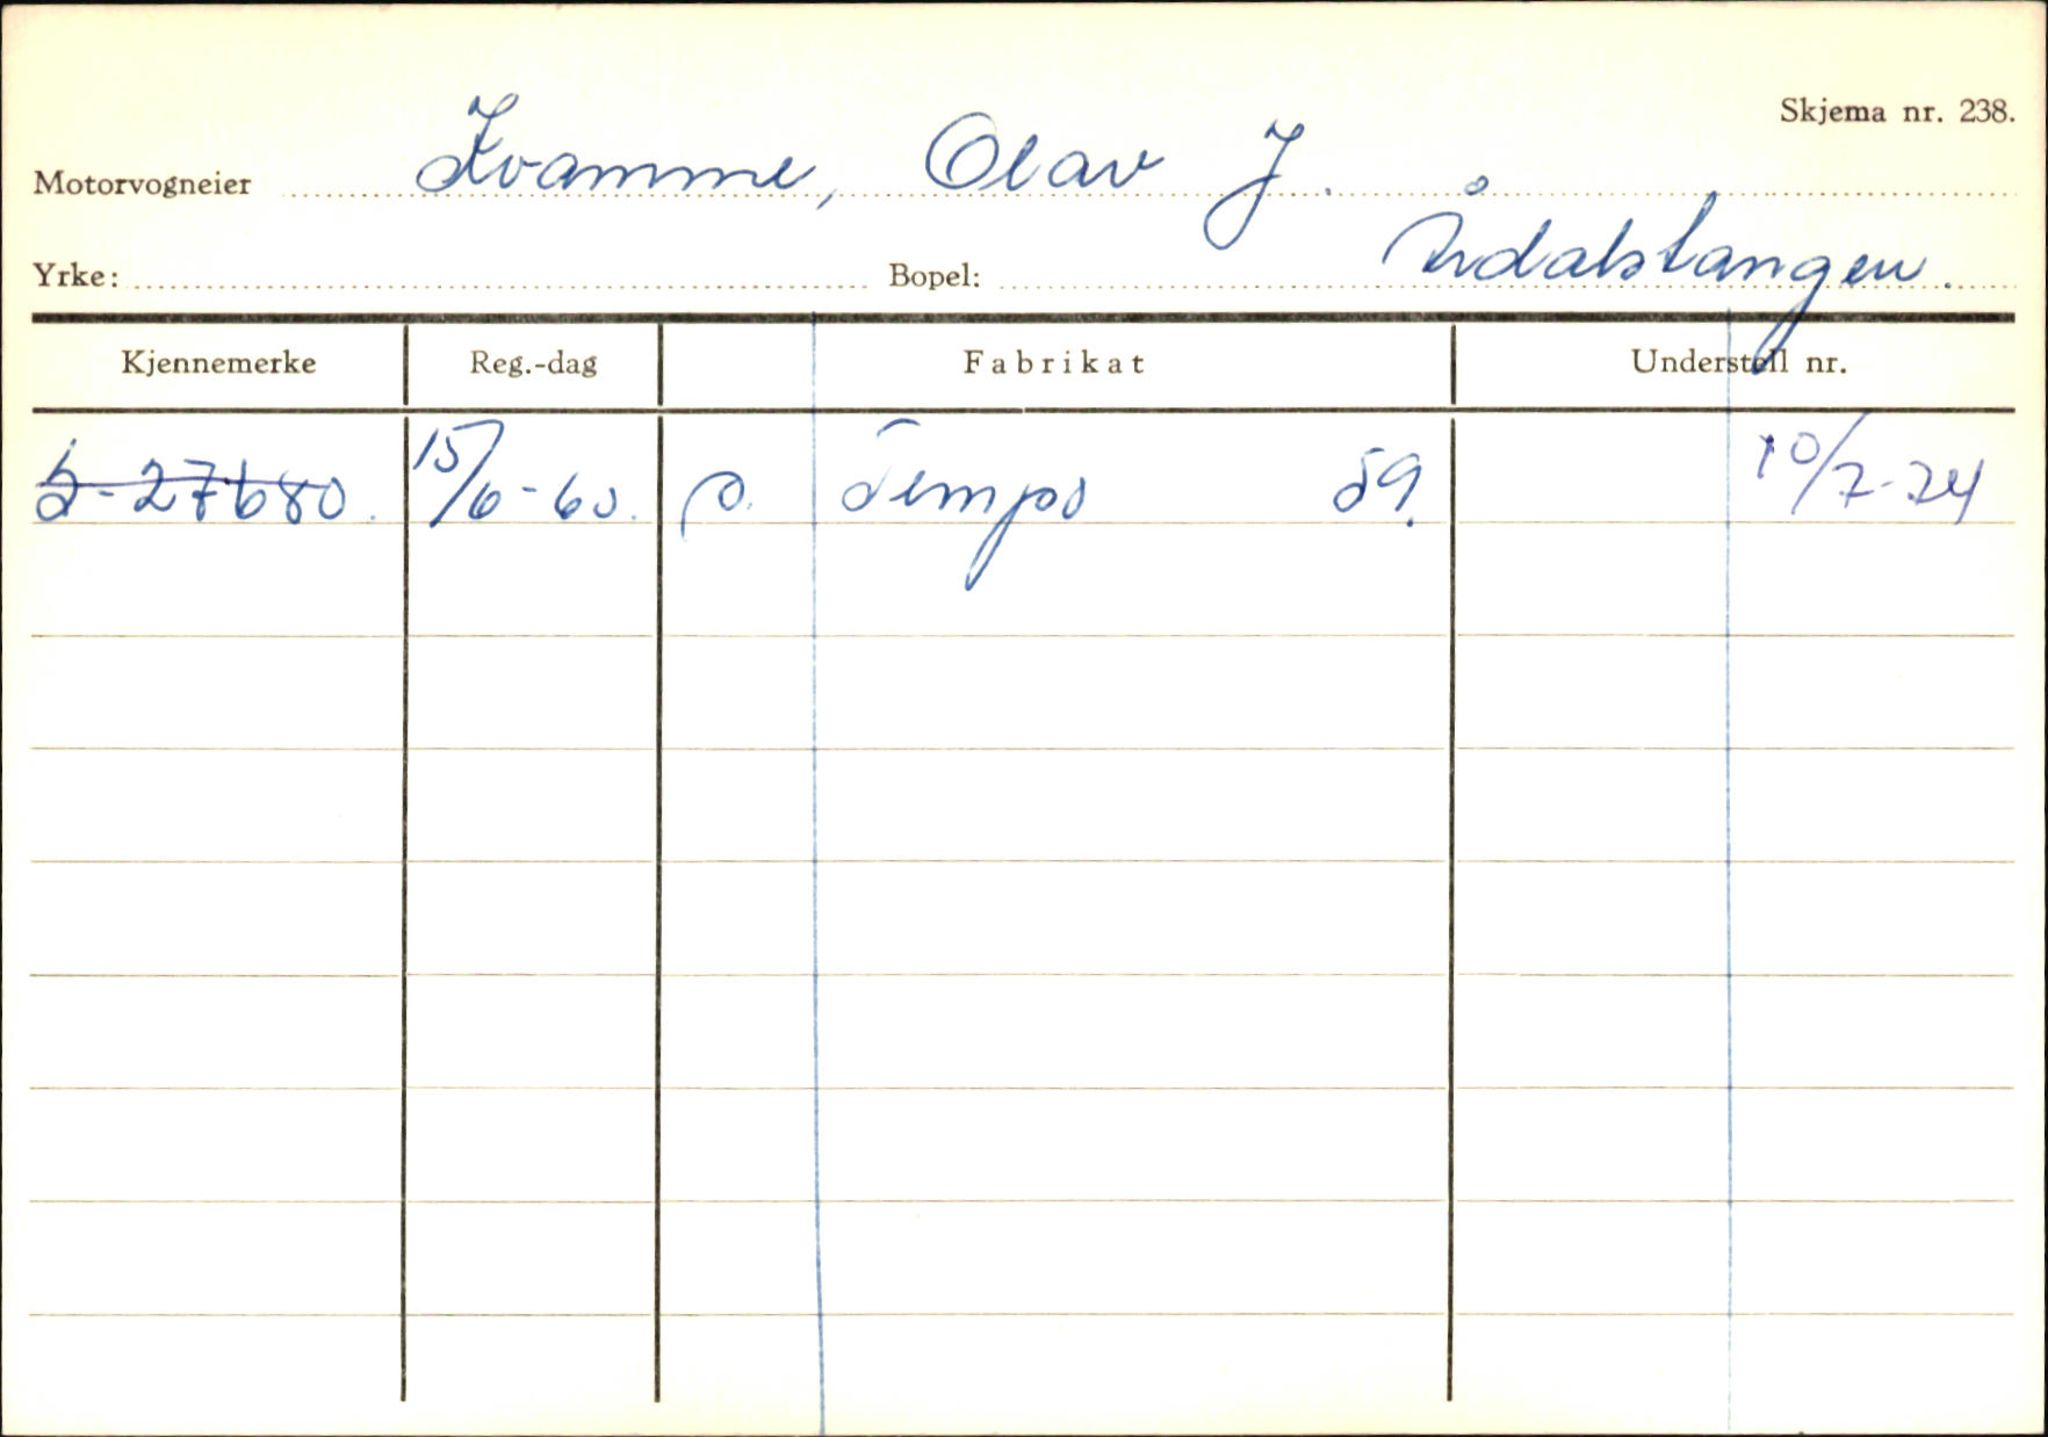 Skjema nr. 238.
Motorvogneier Kvamme, Olav J.
Yrke: Bopel: Årdalstangen.
Kjennemerke Reg.-dag Fabrikat Understell nr.
S-27680. 15/6-60. p. Tempo 59. 10/7-74